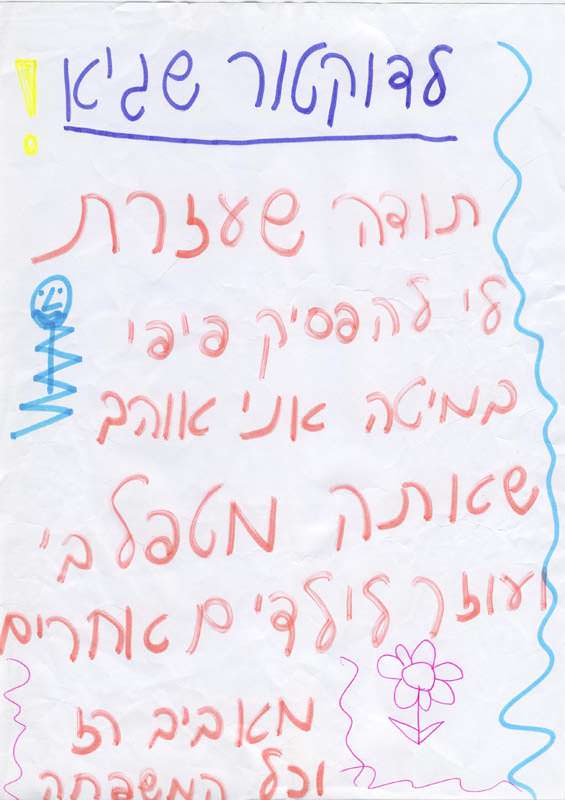 לדוקטור שגיא
תודה שעזרת
לי להפסיק פיפי
במיטה אני אוהב
שאתה מטפל בי
ועוזר לילדים אחרים
מאביב רז
וכל המשפחה